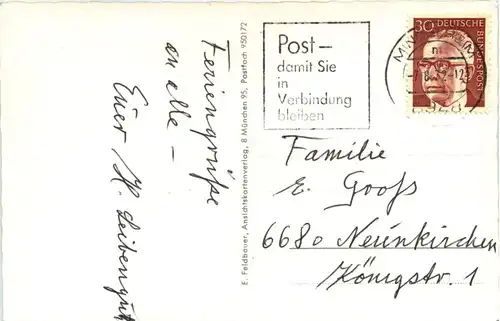 Feriengrüße
an alle –
Euer H. Leibengut
E. Feldbauer, Ansichtskartenverlag, 8 München 95, Postfach 950172
Post –
damit Sie
in
Verbindung
bleiben
30 DEUTSCHE
BUNDESPOST
Familie
E. Groß
6680 Neunkirchen
Königstr. 1